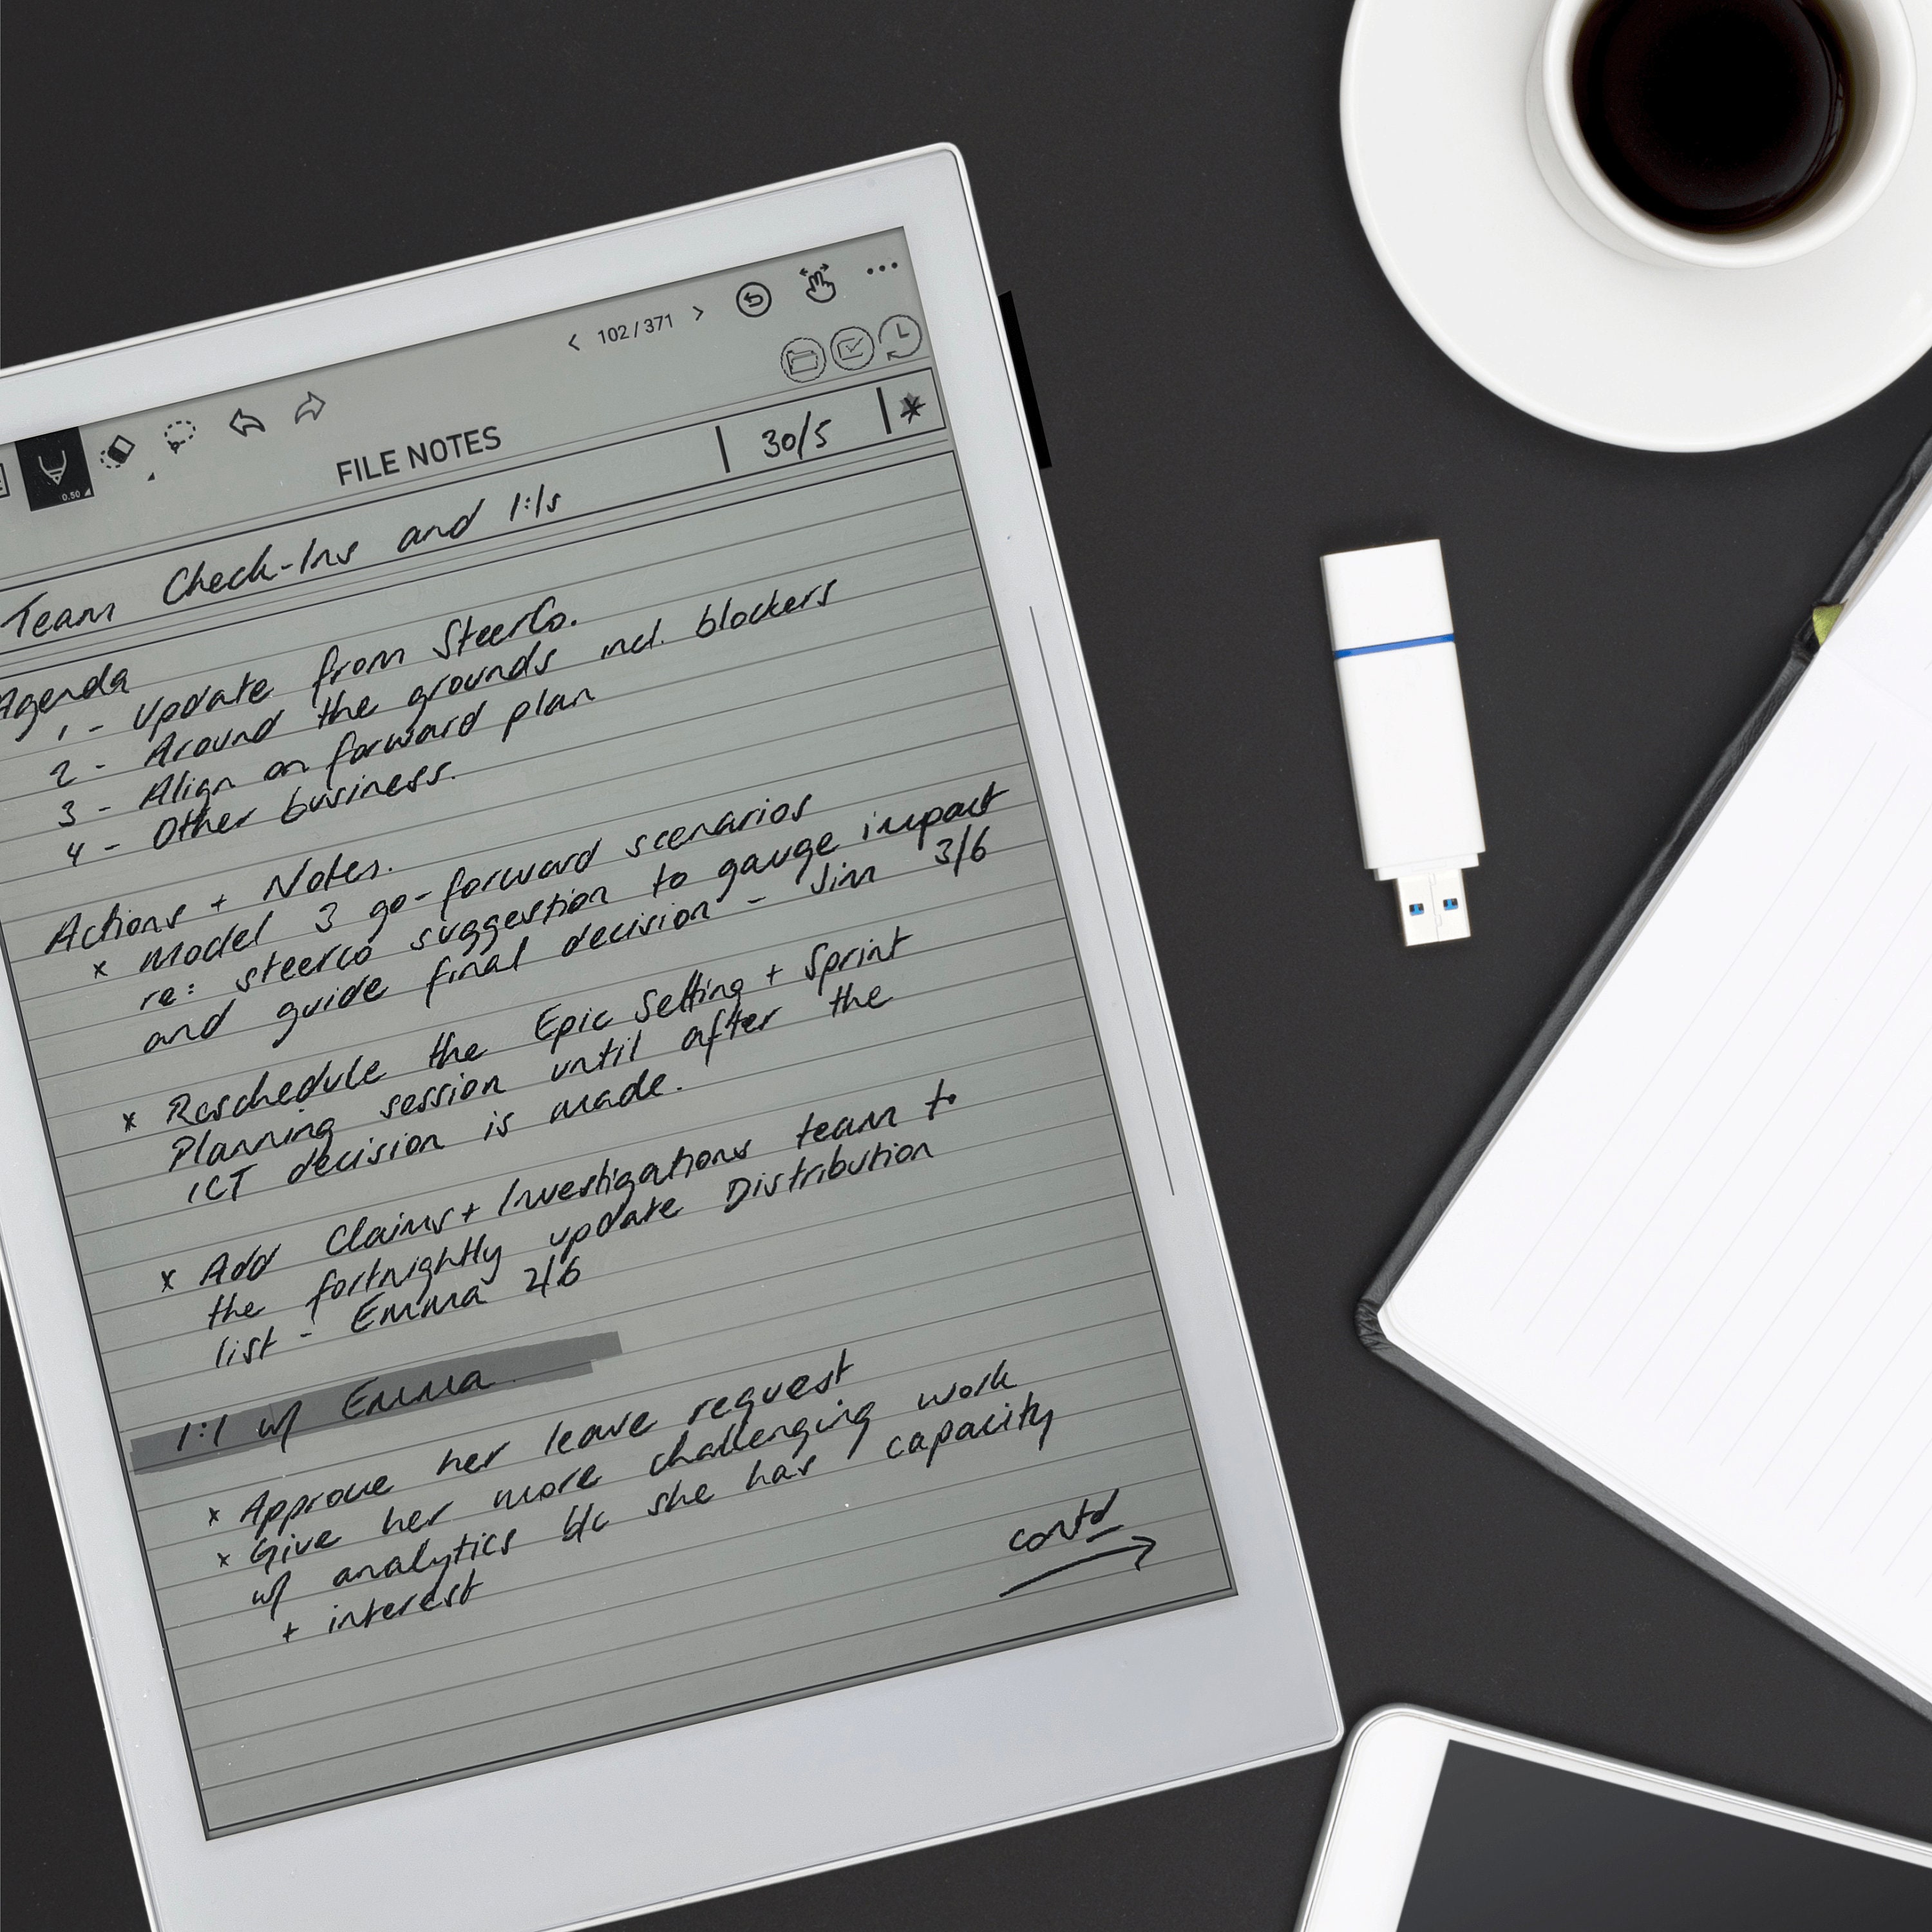 < 102/371 >
0.50
FILE NOTES
Team Check-Ins and 1:1s | 30/5 | *
Agenda
1 - Update from SteerCo.
2 - Around the grounds incl. blockers
3 - Align on forward plan
4 - Other business.
Actions + Notes.
x Model 3 go-forward scenarios
re: steerco suggestion to gauge impact
and guide final decision - Jim 3/6
x Reschedule the Epic Setting + Sprint
Planning session until after the
ICT decision is made.
x Add Claims + Investigations team to
the fortnightly update Distribution
list - Emma 2/6
1:1 w/ Emma
x Approve her leave request
x Give her more challenging work
w/ analytics b/c she has capacity
+ interest
contd